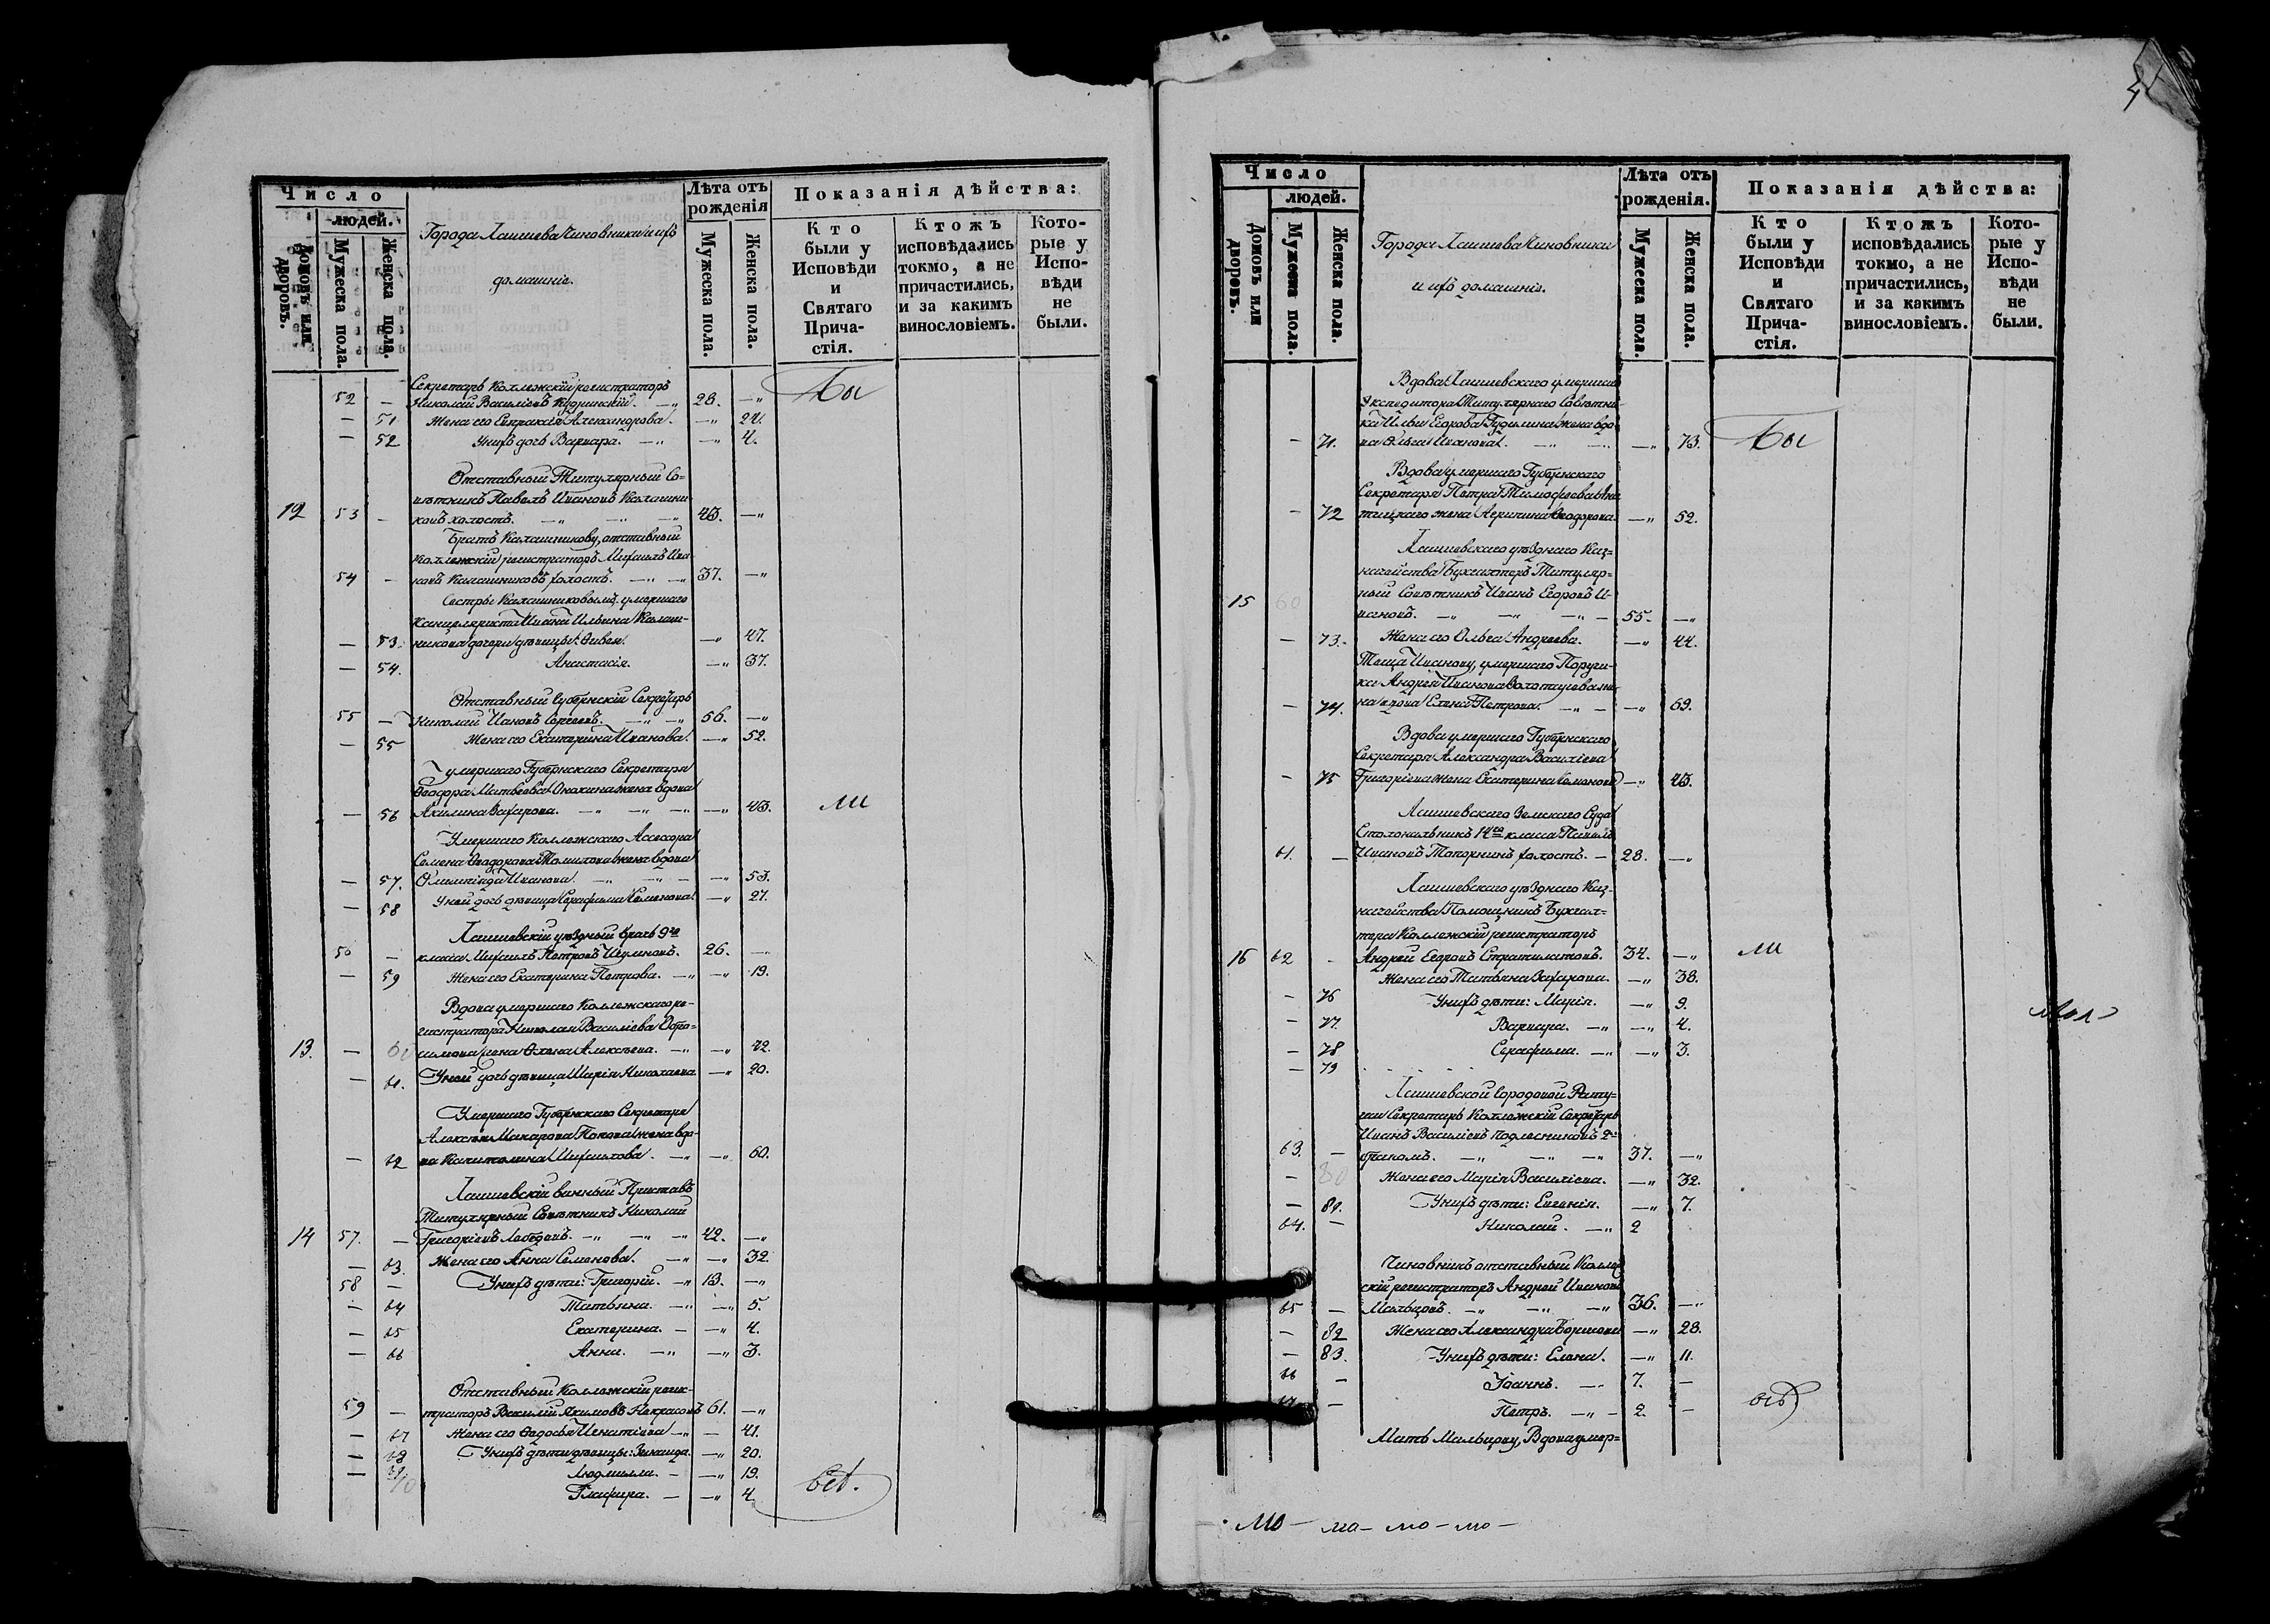 Число
людей.
Домовъ или дворовъ.
Мужеска пола.
Женска пола.
Города Лаишева Чиновники и ихъ
домашніе.
Лѣта отъ
рожденія
Мужеска пола.
Женска пола.
Показанія дѣйства:
Кто
были у
Исповѣди
и
Святаго
Прича-
стія.
Ктожъ
исповѣдались
токмо, а не
причастились,
и за какимъ
винословіемъ.
Кото-
рые у
Испо-
вѣди
не
были.
Секретарь Коллежскій регистраторъ
52 — Николай Василіевъ 28. —„ Бы
— 51 Жена его Евпраксія Александрова. —„ 24.
— 52 У нихъ дочь Варвара. —„ —„ 4.
Отставный Титулярный Со-
вѣтникъ Павелъ Ивановъ Калашни-
12 53 — ковъ холостъ. —„ —„ —„ 43. —„
Братъ Калашникову, отставный
Коллежскій регистраторъ Михаилъ Ива-
54 — новъ Калашниковъ холостъ. —„ —„ 37. —„
Сестры Калашниковымъ, умершаго
Канцеляриста Ивана Ильина Калаш-
— 53. никова дочери дѣвицы: —„ 47.
— 54. Анастасія. —„ 37.
Отставный Губернскій Секретарь
55 — Николай Ивановъ Сергеевъ. —„ —„ 56. —„
— 55 Жена его Екатерина Иванова. —„ 52.
Умершаго Губернскаго Секретаря
Ѳеодора Матвѣева жена вдова
— 56 Акилина Захарова. —„ —„ —„ —„ 43. ли
Умершаго Коллежскаго Ассесора
Семена Ѳеодорова Томилова жена вдова
— 57. Олимпіада Иванова. —„ —„ — —„ 53.
— 58 У ней дочь дѣвица Серафима Семенова. —„ 27.
Лаишевскій уѣздный врачь 9го
56 — класса Михаилъ Петровъ 26. —
— 59 Жена его Екатерина Петрова. —„ —„ 19.
Вдова умершаго Коллежскаго ре-
гистратора Николая Василіева Обро-
13. — 60 симова жена Алексѣева. —„ —„ 42.
— 61. У ней дочь дѣвица Марія Николаева —„ 20.
Умершаго Губернскаго Секретаря
Алексѣя Макарова Попова жена вдо-
— 62 ва Капитолина Михаилова. —„ —„ 60.
Лаишевскій винный Приставъ
Титулярный Совѣтникъ Николай
14 57. — Григоріевъ Лебедевъ. —„ —„ — 42. —„
— 63. Жена его Анна Семенова. —„ —„ 32.
58 — У нихъ дѣти: Григорій. —„ 13. —„
— 64 Татьяна. —„ —„ 5.
— 65 Екатерина. — —„ 4.
— 66 Анна. —„ —„ 3.
Отставный Коллежскій регис-
59 — траторъ Василій Якимовъ Некрасовъ 61. —„
— 67 Жена его Ѳедосья Игнатіева —„ — 41.
— 68 У нихъ дѣти дѣвицы: Зинаида. —„ 20.
— 69 Людмилла. — —„ 19.
70 Глафира. — —„ 4.
Число
людей.
Домовъ или дворовъ.
Мужеска пола.
Женска пола.
Города Лаишева Чиновники
и ихъ домашніе.
Лѣта отъ
рожденія.
Мужеска пола.
Женска пола.
Показанія дѣйства:
Кто
были у
Исповѣди
и
Святаго
Прича-
стія.
Ктожъ
исповѣдались
токмо, а не
причастились,
и за какимъ
винословіемъ.
Кото-
рые у
Испо-
вѣди
не
были.
Вдова Лаишевскаго умершаго
Экспедитора Титулярнаго Совѣтни-
ка Ильи Егорова жена вдо-
— 71. ва Ольга Иванова. —„ —„ 73. Бы
Вдова умершаго Губернскаго
Секретаря Петра Тимофеева
— 72 жена Агрипина Ѳеодорова. —„ 52.
Лаишевскаго уѣзднаго Каз-
начейства Бухгалтеръ Титуляр-
15 60 ный Совѣтникъ Иванъ Егоровъ И-
вановъ. —„ —„ —„ — 55. —„
— 73. Жена его Ольга Андреева. —„ 44.
Теща Иванову, умершаго Поручи-
ка Андрея Иванова же-
— 74. на вдова Елена Петрова. —„ — —„ 69.
Вдова умершаго Губернскаго
Секретаря Александра Василіева
— 75 Григоріева жена Екатерина Семенова —„ 43.
Лаишевскаго Земскаго Суда
Столоначальникъ 14го класса Павелъ
61. — Ивановъ Топорнинъ холостъ. — 28. —„
Лаишевскаго уѣзднаго Каз-
начейства Помощникъ Бухгал-
тера Коллежскій регистраторъ
16 62 — Андрей Егоровъ Стратилатовъ. 34. —„ ли
Жена его Татьяна Захарова. —„ 38.
— 76 У нихъ дѣти: Марія. —„ 9.
— 77. Варвара. —„ —„ 4.
— 78 Серафима. —„ —„ 3.
— 79
Лаишевской Городовой Рату-
ши Секретарь Коллежскій Секретарь
Иванъ Василіевъ Подлесниковъ 2мъ
63. — бракомъ. —„ —„ —„ 37. —„
— 80 Жена его Марія Василіева. —„ 32.
— 81. У нихъ дѣти: Евгенія. —„ 7.
64. — Николай. —„ 2
Чиновникъ отставный Коллеж-
скій регистраторъ Андрей Ивановъ
65 — Мальцовъ. —„ —„ —„ 36. —„
— 82 Жена его Александра —„ 28.
— 83. У нихъ дѣти: Елена. —„ 11.
66 — Іоаннъ. —„ 7. —
67 — Петръ. —„ — 2. —
Мать Мальцову, Вдова умер-
мо — ма — мо — мо —